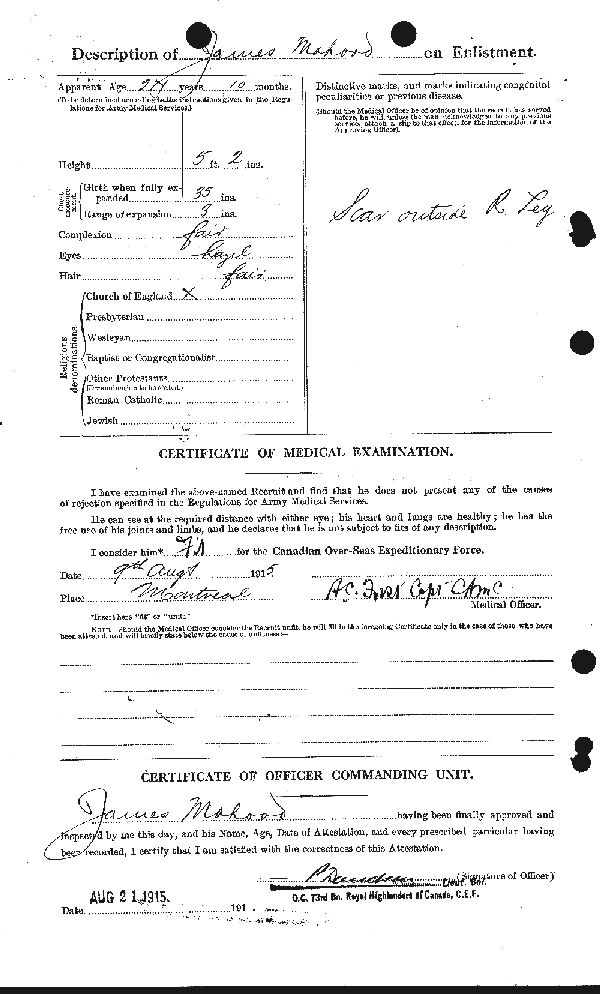 Description of James Mahood on Enlistment.
Apparent Age 27 years 10 months.
(To be determined according to the instructions given in the Regulations for Army Medical Services.)
Height 5 ft. 2 ins.
Chest measurement
Girth when fully expanded 35 ins.
Range of expansion 3 ins.
Complexion fair
Eyes hazel
Hair fair
Religious denominations
Church of England X
Presbyterian
Wesleyan
Baptist or Congregationalist
Other Protestants
(Denomination to be stated.)
Roman Catholic
Jewish
Distinctive marks, and marks indicating congenital
peculiarities or previous disease.
(Should the Medical Officer be of opinion that the recruit has served
before, he will, unless the man acknowledges to any previous
service, attach a slip to that effect, for the information of the
Approving Officer).
Scar outside R. Leg
CERTIFICATE OF MEDICAL EXAMINATION.
I have examined the above-named Recruit and find that he does not present any of the causes
of rejection specified in the Regulations for Army Medical Services.
He can see at the required distance with either eye; his heart and lungs are healthy; he has the
free use of his joints and limbs, and he declares that he is not subject to fits of any description.
I consider him* Fit for the Canadian Over-Seas Expeditionary Force.
Date 9th Augt 1915
Place Montreal
Capt CAMC
Medical Officer.
*Insert here "fit" or "unfit."
NOTE.—Should the Medical Officer consider the Recruit unfit, he will fill in the foregoing Certificate only in the case of those who have
been attested, and will briefly state below the cause of unfitness:—
CERTIFICATE OF OFFICER COMMANDING UNIT.
James Mahood having been finally approved and
inspected by me this day, and his Name, Age, Date of Attestation, and every prescribed particular having
been recorded, I certify that I am satisfied with the correctness of this Attestation.
(Signature of Officer)
Lieut. Col.
O.C. 73rd Bn. Royal Highlanders of Canada, C.E.F.
AUG 21 1915
Date 191